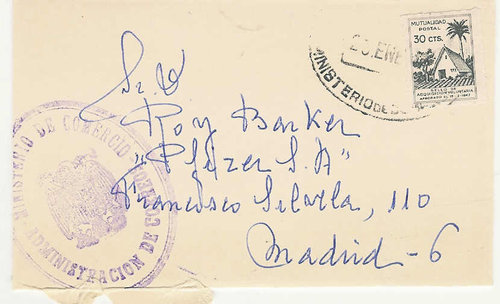 MUTUALIDAD
POSTAL
30 CTS.
SELLO DE
ADQUISICION VOLUNTARIA
20.ENE
MINISTERIO DE
Sr. D
Roy Barker
"Pfizer S.A"
Francisco Silvela, 110
Madrid-6
MINISTERIO DE COMERCIO
ADMINISTRACION DE CORREOS